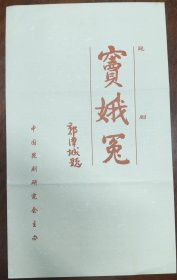 昆剧
窦娥冤
郭汉城题
中国昆剧研究会主办